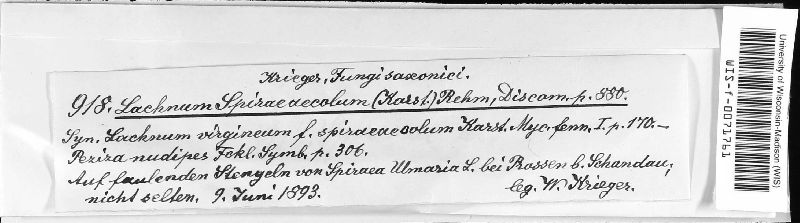 Krieger, Fungi saxonici.
918. Lachnum Spiraeaecolum (Karst.) Rehm, Discom. p. 880.
Syn. Lachnum virgineum f. spiraeaecolum Karst. Myc. fenn. I. p. 170. —
Peziza nudipes Fckl. Symb. p. 306.
Auf faulenden Stengeln von Spiraea Ulmaria L. bei Prossen b. Schandau,
nicht selten. 9. Juni 1893. leg. W. Krieger.
University of Wisconsin-Madison (WIS)
WIS-f-0071761